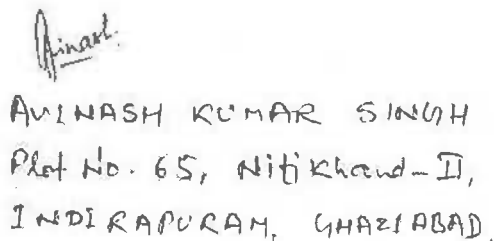 Avinash
AVINASH KUMAR SINGH
Plot No. 65, Niti Khand-II,
INDIRAPURAM, GHAZIABAD